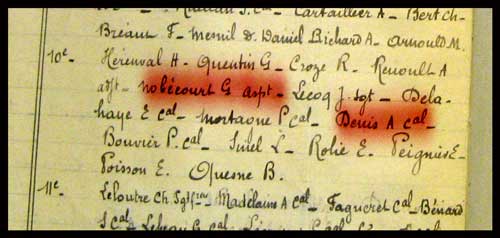 Cartailler A - Bert Ch -
Bréant F - Mesnil D. Daniel Bichard A - Arnould M.
10e Hérenval H - Quentin G - Croze R - Renoult A
aspt - Nobécourt G Aspt - Lecoq J. Sgt - Dela-
haye E Cal - Mortagne P Cal - Denis A Cal -
Bouvier P. Cal - Sinel L - Rolie E. Peignies E -
Poisson E. Quesne B.
11e Leloutre Ch Sgt - Madelaine A Cal - Fagueret Cal - Bénard
S Cal - Lebeau G Cal -